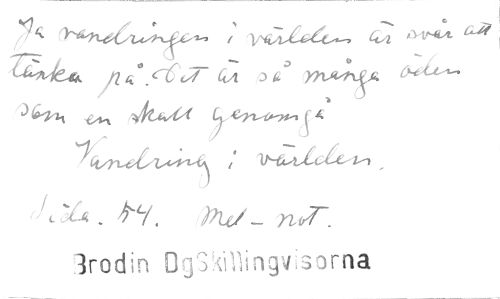 Ja vandringen i världen är svår att
tänka på. Det är så många öden
som en skall genomgå
Vandring i världen.
Sida. 54. Mel-not.
Brodin DgSkillingvisorna